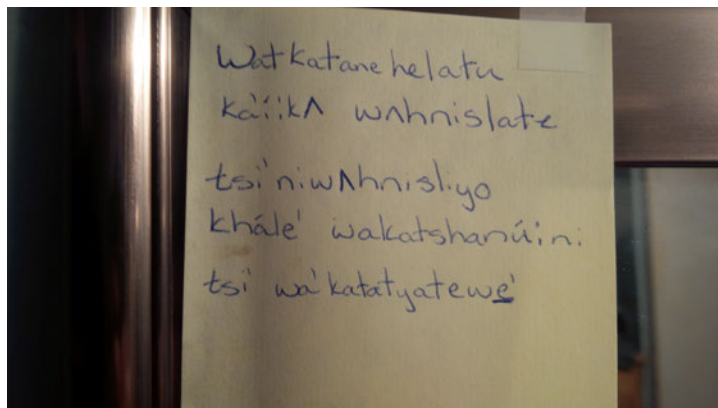 Watkatanehelatu
ka'í:kʌ wʌhnislate
tsi'niwʌhnisliyo
khále' wakatshanú:ni
tsi' wa'katatyatewe̲'